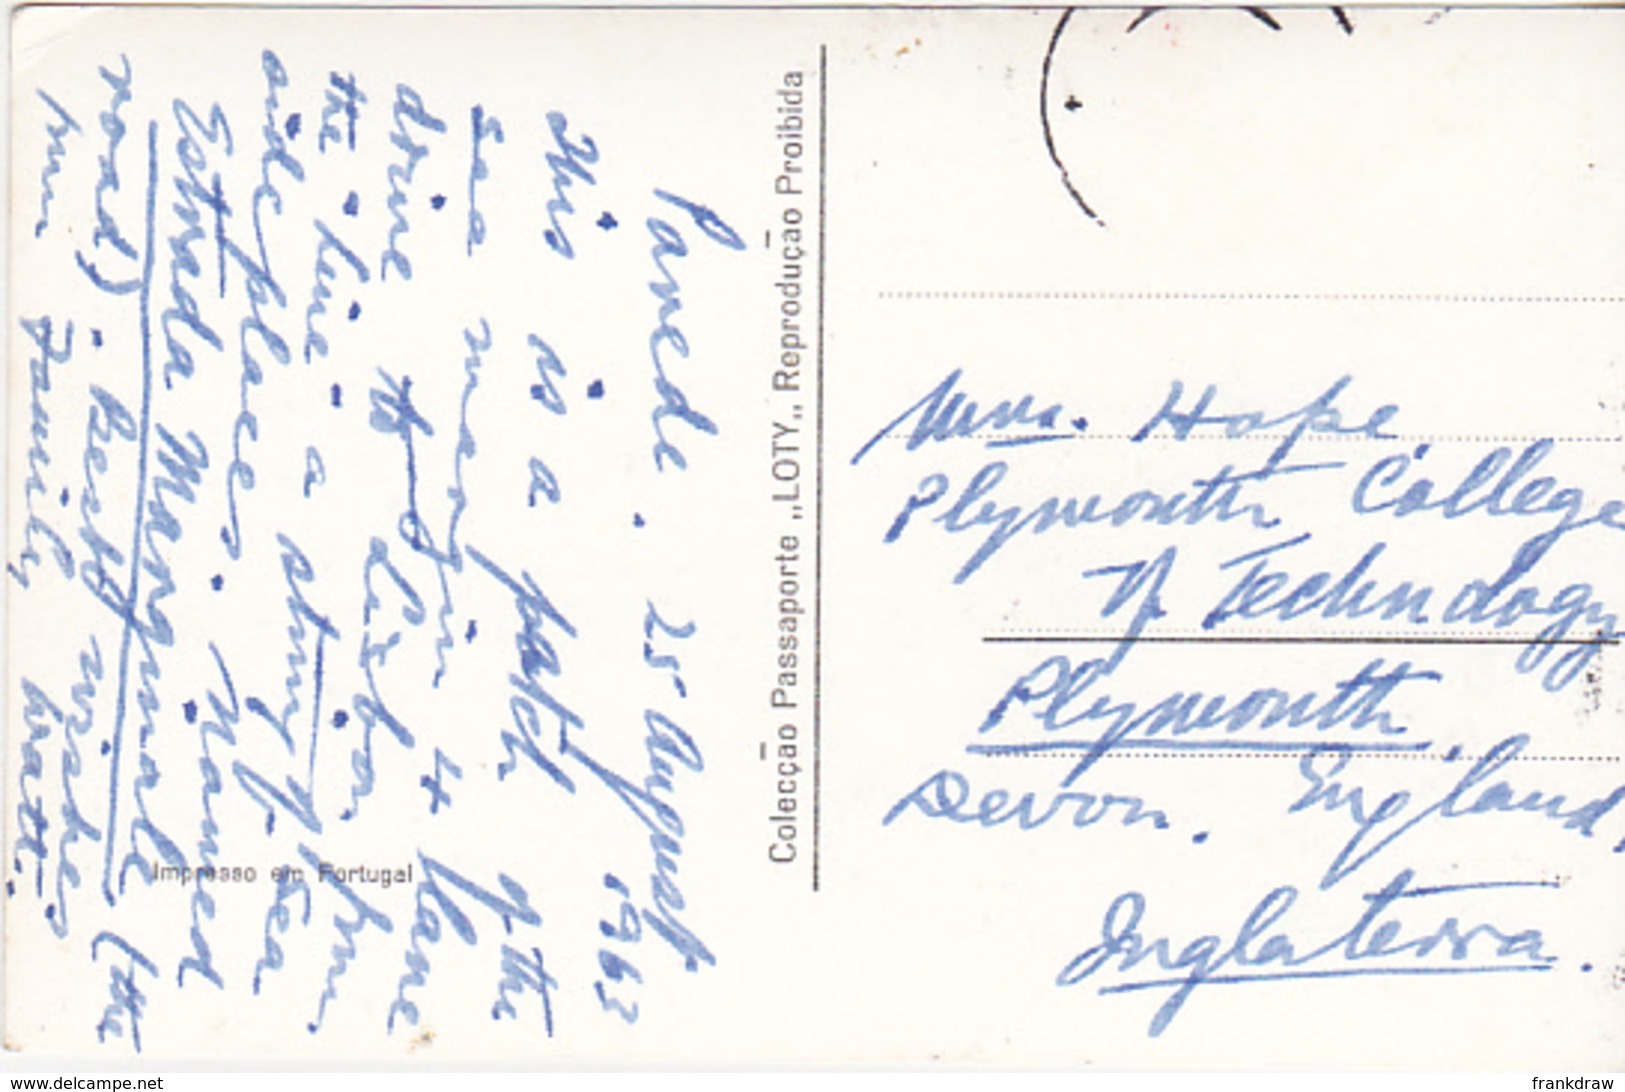 Parede. 25 August 1963
This is a patch of the
sea margin 4 lane
drive to Lisbon from
the line - a string of sea
side places. Named
Estrada Marginale (the
road). Best wishes
from Family Watt.
Impresso em Portugal
Colecção Passaporte „LOTY„ Reprodução Proibida
Mrs. Hope
Plymouth College
of Technology
Plymouth.
Devon. England,
Inglaterra.
www.delcampe.net
frankdraw